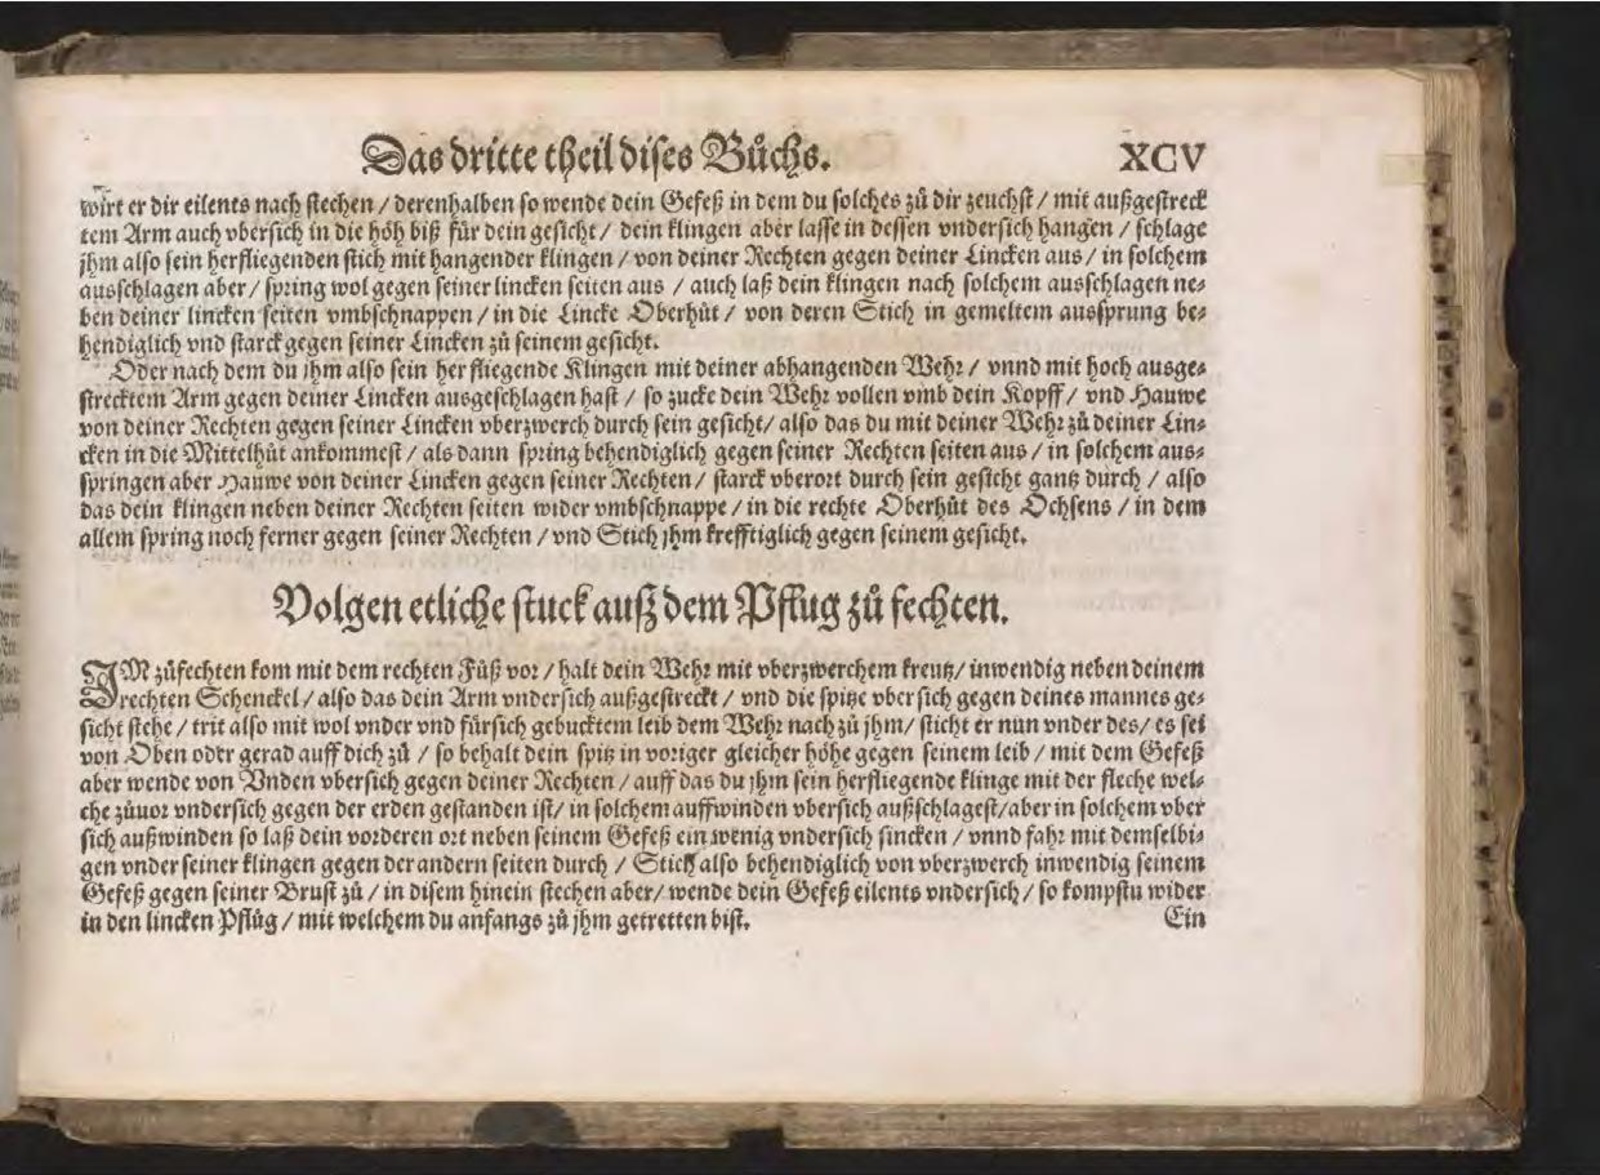 Das dritte theil dises Bůchs. XCV
wirt er dir eilents nach stechen / derenhalben so wende dein Gefeß in dem du solches zů dir zeuchst / mit außgestreck
tem Arm auch vbersich in die höh biß für dein gesicht / dein klingen aber lasse in dessen vndersich hangen / schlage
jhm also sein herfliegenden stich mit hangender klingen / von deiner Rechten gegen deiner Lincken aus / in solchem
ausschlagen aber / spring wol gegen seiner lincken seiten aus / auch laß dein klingen nach solchem ausschlagen ne⸗
ben deiner lincken seiten vmbschnappen / in die Lincke Oberhůt / von deren Stich in gemeltem aussprung be⸗
hendiglich vnd starck gegen seiner Lincken zů seinem gesicht.
Oder nach dem du jhm also sein her fliegende Klingen mit deiner abhangenden Wehr / vnnd mit hoch ausge⸗
strecktem Arm gegen deiner Lincken ausgeschlagen hast / so zucke dein Wehr vollen vmb dein Kopff / vnd Hauwe
von deiner Rechten gegen seiner Lincken vberzwerch durch sein gesicht / also das du mit deiner Wehr zů deiner Lin⸗
cken in die Mittelhůt ankommest / als dann spring behendiglich gegen seiner Rechten seiten aus / in solchem aus⸗
springen aber Hauwe von deiner Lincken gegen seiner Rechten / starck vberort durch sein gesicht gantz durch / also
das dein klingen neben deiner Rechten seiten wider vmbschnappe / in die rechte Oberhůt des Ochsens / in dem
allem spring noch ferner gegen seiner Rechten / vnd Stich jhm krefftiglich gegen seinem gesicht.
Volgen etliche stuck auß dem Pflug zů fechten.
IM zůfechten kom mit dem rechten Fůß vor / halt dein Wehr mit vberzwerchem kreutz / inwendig neben deinem
rechten Schenckel / also das dein Arm vndersich außgestreckt / vnd die spitze vbersich gegen deines mannes ge⸗
sicht stehe / trit also mit wol vnder vnd fürsich gebucktem leib dem Wehr nach zů jhm / sticht er nun vnder des / es sei
von Oben oder gerad auff dich zů / so behalt dein spitz in voriger gleicher höhe gegen seinem leib / mit dem Gefeß
aber wende von Vnden vbersich gegen deiner Rechten / auff das du jhm sein herfliegende klinge mit der fleche wel⸗
che zůuor vndersich gegen der erden gestanden ist / in solchem auffwinden vbersich außschlagest / aber in solchem vber
sich außwinden so laß dein vorderen ort neben seinem Gefeß ein wenig vndersich sincken / vnnd fahr mit demselbi⸗
gen vnder seiner klingen gegen der andern seiten durch / Stich also behendiglich von vberzwerch inwendig seinem
Gefeß gegen seiner Brust zů / in disem hinein stechen aber / wende dein Gefeß eilents vndersich / so kompstu wider
in den lincken Pflůg / mit welchem du anfangs zů jhm getretten bist. Ein